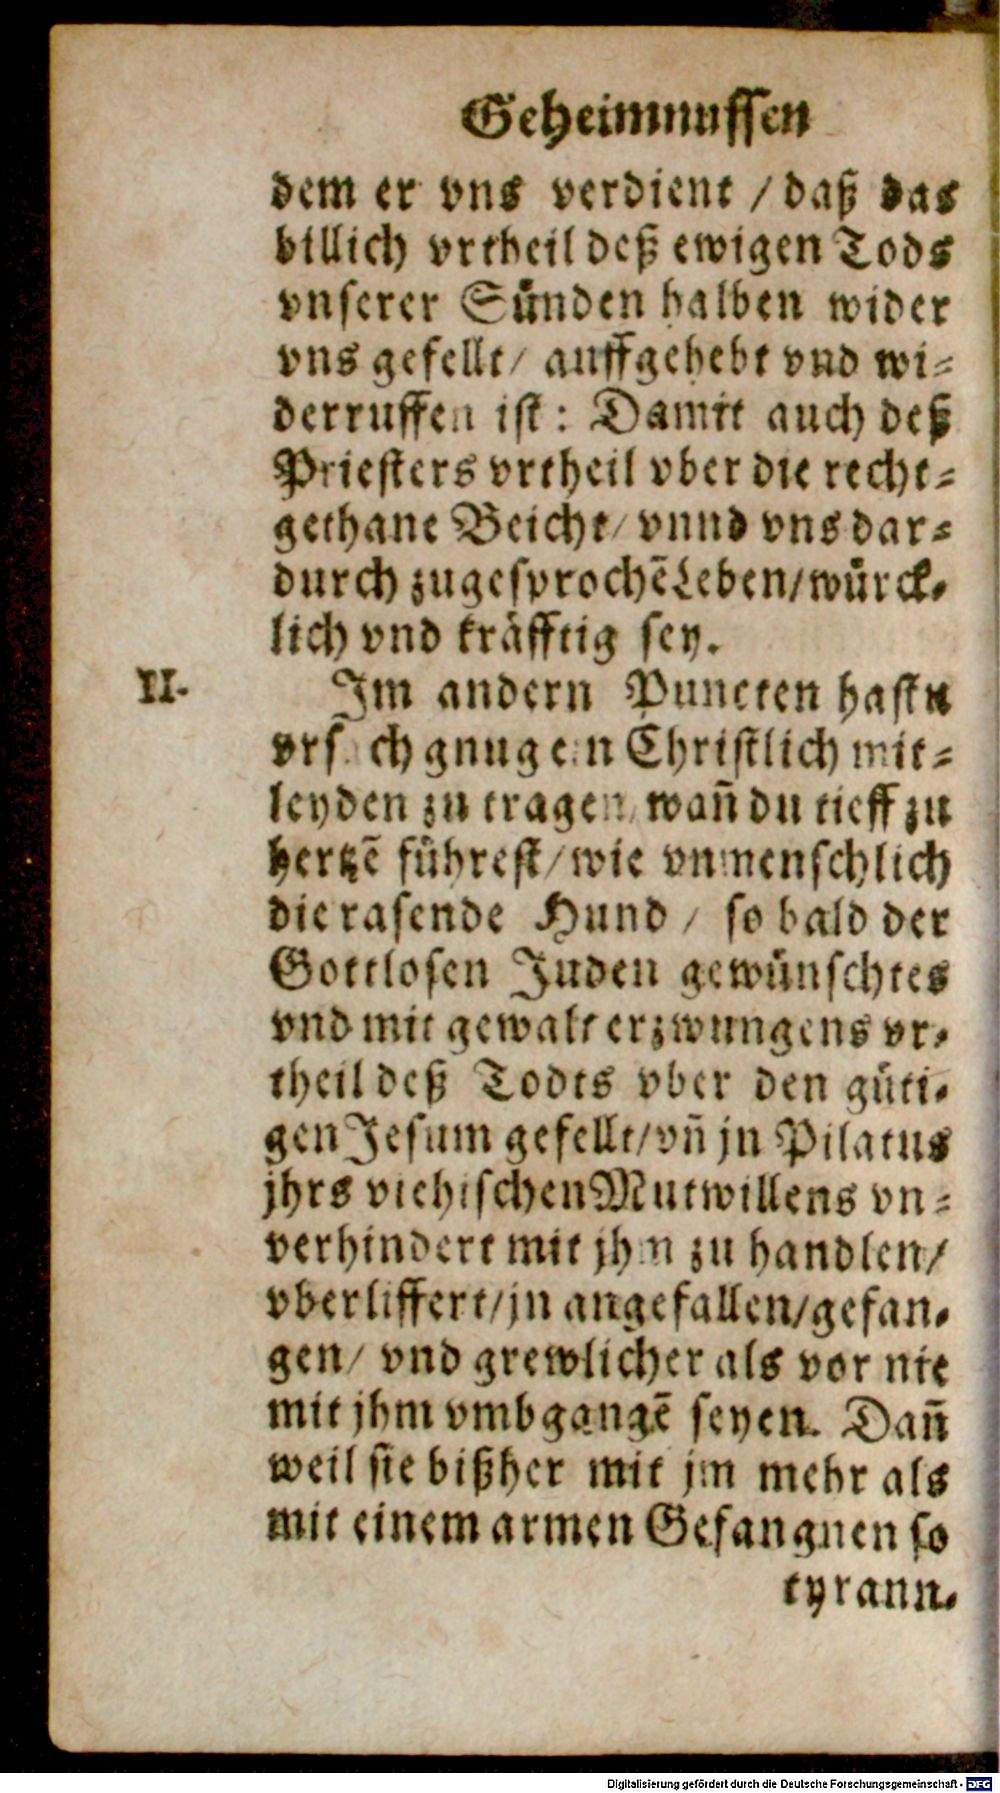 Geheimnussen
dem er vns verdient / daß das
billich vrtheil deß ewigen Tods
vnserer Sünden halben wider
vns gefellt/ auffgehebt vnd wi-
derruffen ist: Damit auch deß
Priesters vrtheil vber die recht-
gethane Beicht/ vnnd vns dar-
durch zugesprochē Leben/würck-
lich vnd kräfftig sey.
II. Im andern Puncten hastu
vrsach gnugen Christlich mit-
leyden zu tragen, wañ du tieff zu
hertzē führest/wie vnmenschlich
die rasende Hund / so bald der
Gottlosen Juden gewünschtes
vnd mit gewalt erzwungens vr-
theil deß Todts vber den güti-
gen Jesum gefellt/vñ jn Pilatus
jhrs viehischen Mutwillens vn-
verhindert mit jhm zu handlen/
vberliffert/jn angefallen/gefan-
gen/ vnd grewlicher als vor nie
mit jhm vmbgangē seyen. Dañ
weil sie bißher mit jm mehr als
mit einem armen Gefangnen so
tyrann-
Digitalisierung gefördert durch die Deutsche Forschungsgemeinschaft - DFG